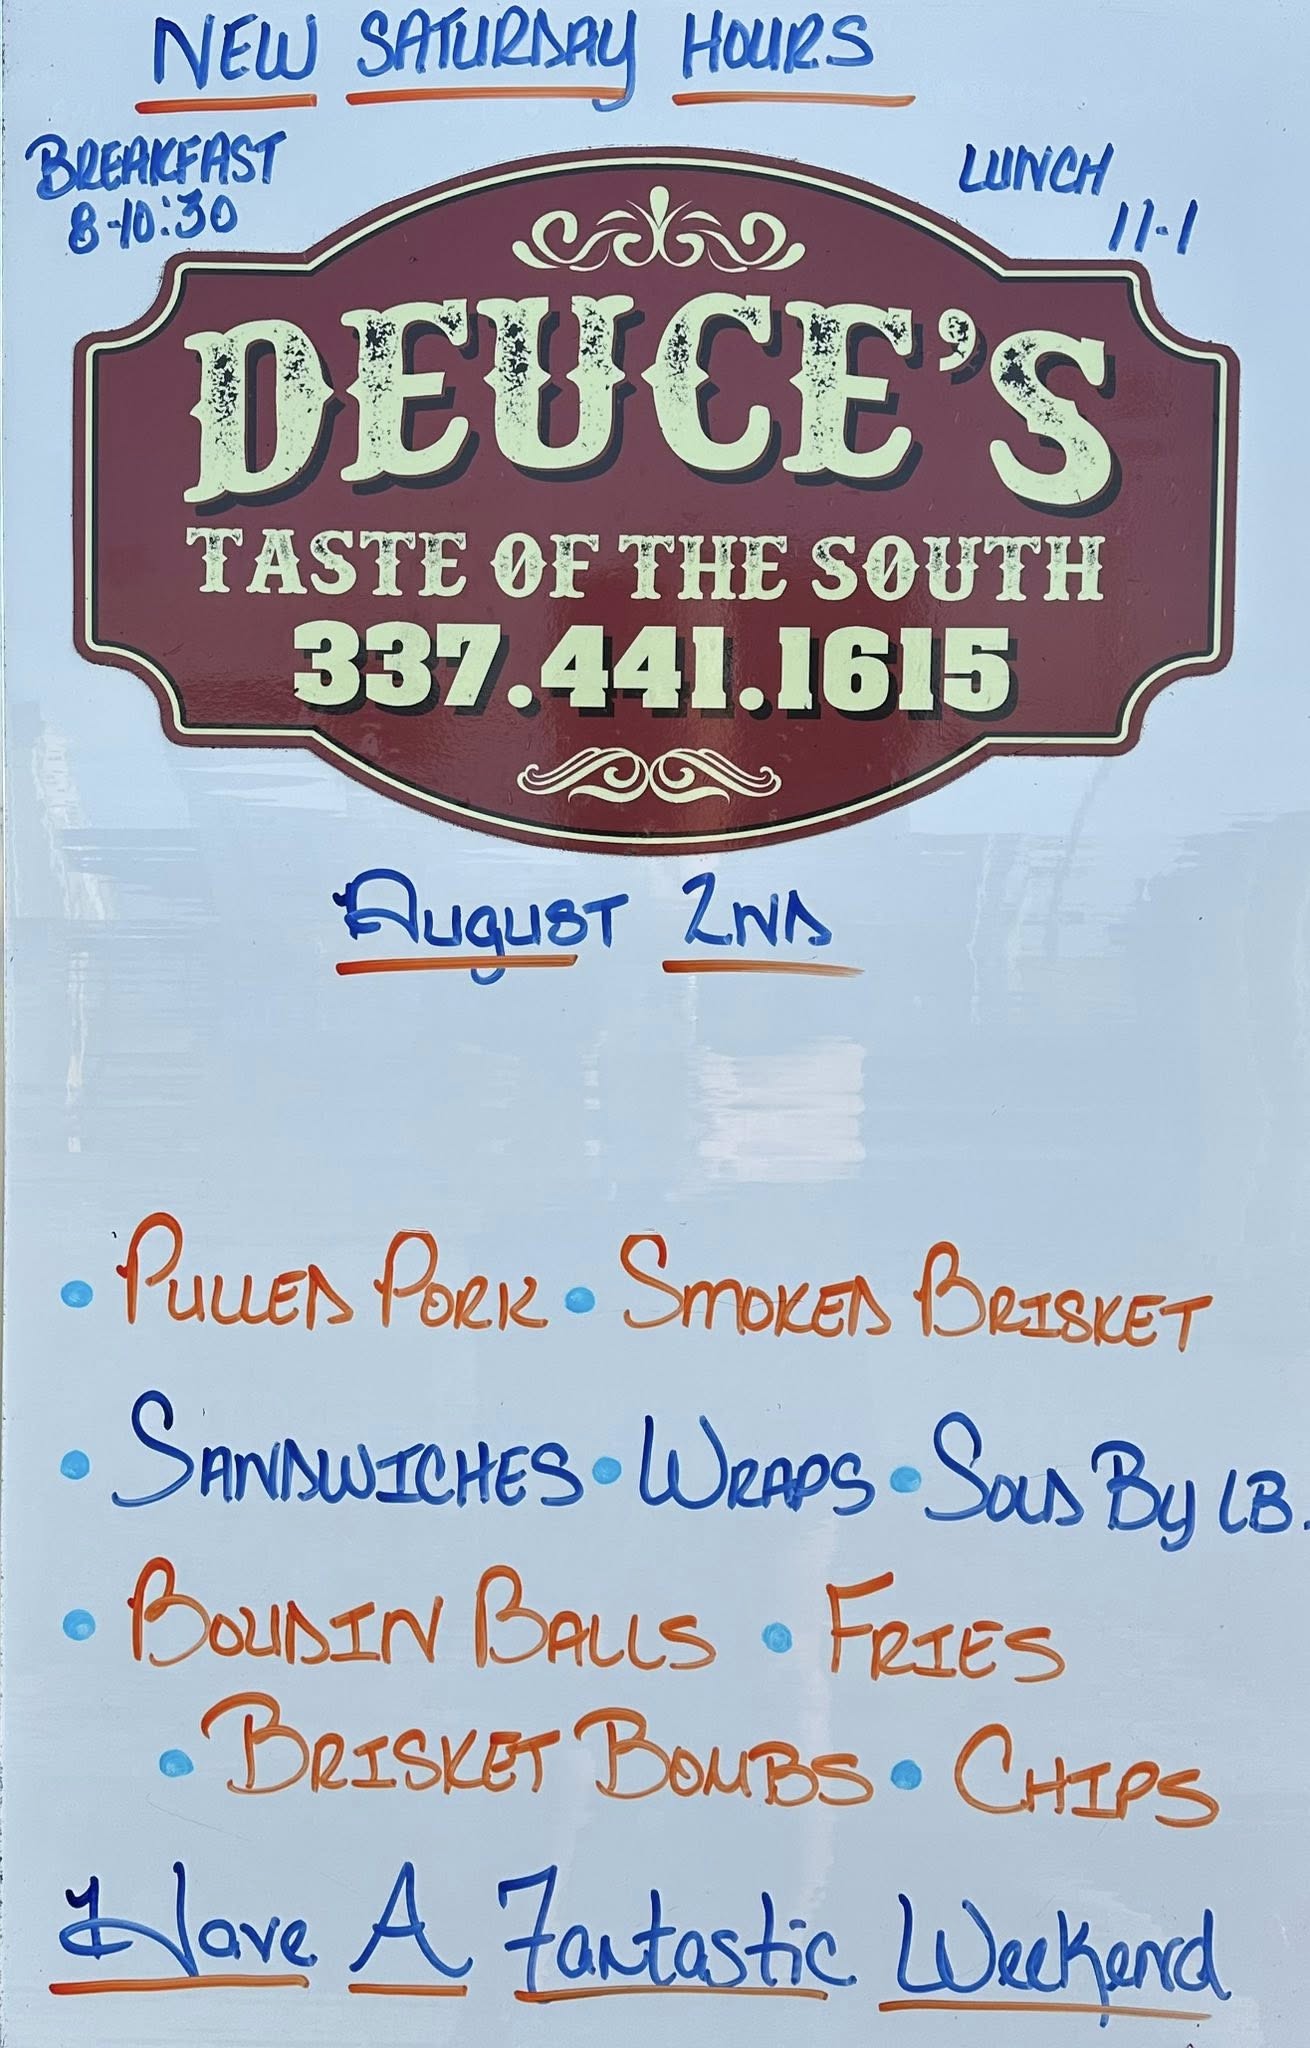 NEW SATURDAY HOURS
BREAKFAST
8-10:30
LUNCH
11-1
DEUCE'S
TASTE OF THE SOUTH
337.441.1615
August 2ND
• PULLED PORK • SMOKED BRISKET
• SANDWICHES • WRAPS • SOLD By LB.
• BOUDIN BALLS • FRIES
• BRISKET BOMBS • CHIPS
Have A Fantastic Weekend